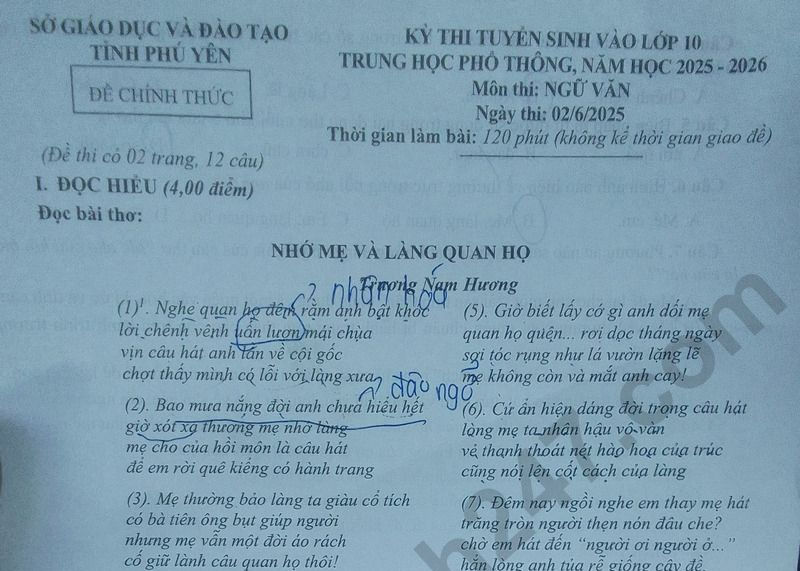 SỞ GIÁO DỤC VÀ ĐÀO TẠO
TỈNH PHÚ YÊN
ĐỀ CHÍNH THỨC
(Đề thi có 02 trang, 12 câu)
KỲ THI TUYỂN SINH VÀO LỚP 10
TRUNG HỌC PHỔ THÔNG, NĂM HỌC 2025 - 2026
Môn thi: NGỮ VĂN
Ngày thi: 02/6/2025
Thời gian làm bài: 120 phút (không kể thời gian giao đề)
I. ĐỌC HIỂU (4,00 điểm)
Đọc bài thơ:
NHỚ MẸ VÀ LÀNG QUAN HỌ
Trương Nam Hương
? nhân hoá
(1)¹. Nghe quan họ đêm rằm anh bật khóc
lời chênh vênh uốn lượn mái chùa
vịn câu hát anh lần về cội gốc
chợt thấy mình có lỗi với làng xưa
? đảo ngữ
(2). Bao mưa nắng đời anh chưa hiểu hết
giờ xót xa thương mẹ nhớ làng
mẹ cho của hồi môn là câu hát
để em rời quê kiểng có hành trang
(3). Mẹ thường bảo làng ta giàu cổ tích
có bà tiên ông bụt giúp người
nhưng mẹ vẫn một đời áo rách
cố giữ lành câu quan họ thôi!
(5). Giờ biết lấy cớ gì anh dối mẹ
quan họ quện... rơi dọc tháng ngày
sợi tóc rụng như lá vườn lặng lẽ
mẹ không còn và mắt anh cay!
(6). Cứ ẩn hiện dáng đời trong câu hát
lòng mẹ ta nhân hậu vô vàn
vẻ thanh thoát nét hào hoa của trúc
cũng nói lên cốt cách của làng
(7). Đêm nay ngồi nghe em thay mẹ hát
trăng tròn người thẹn nón đâu che?
chờ em hát đến “người ơi người ở...”
hẳn lòng anh túa rễ giống cây đề.
h247.com